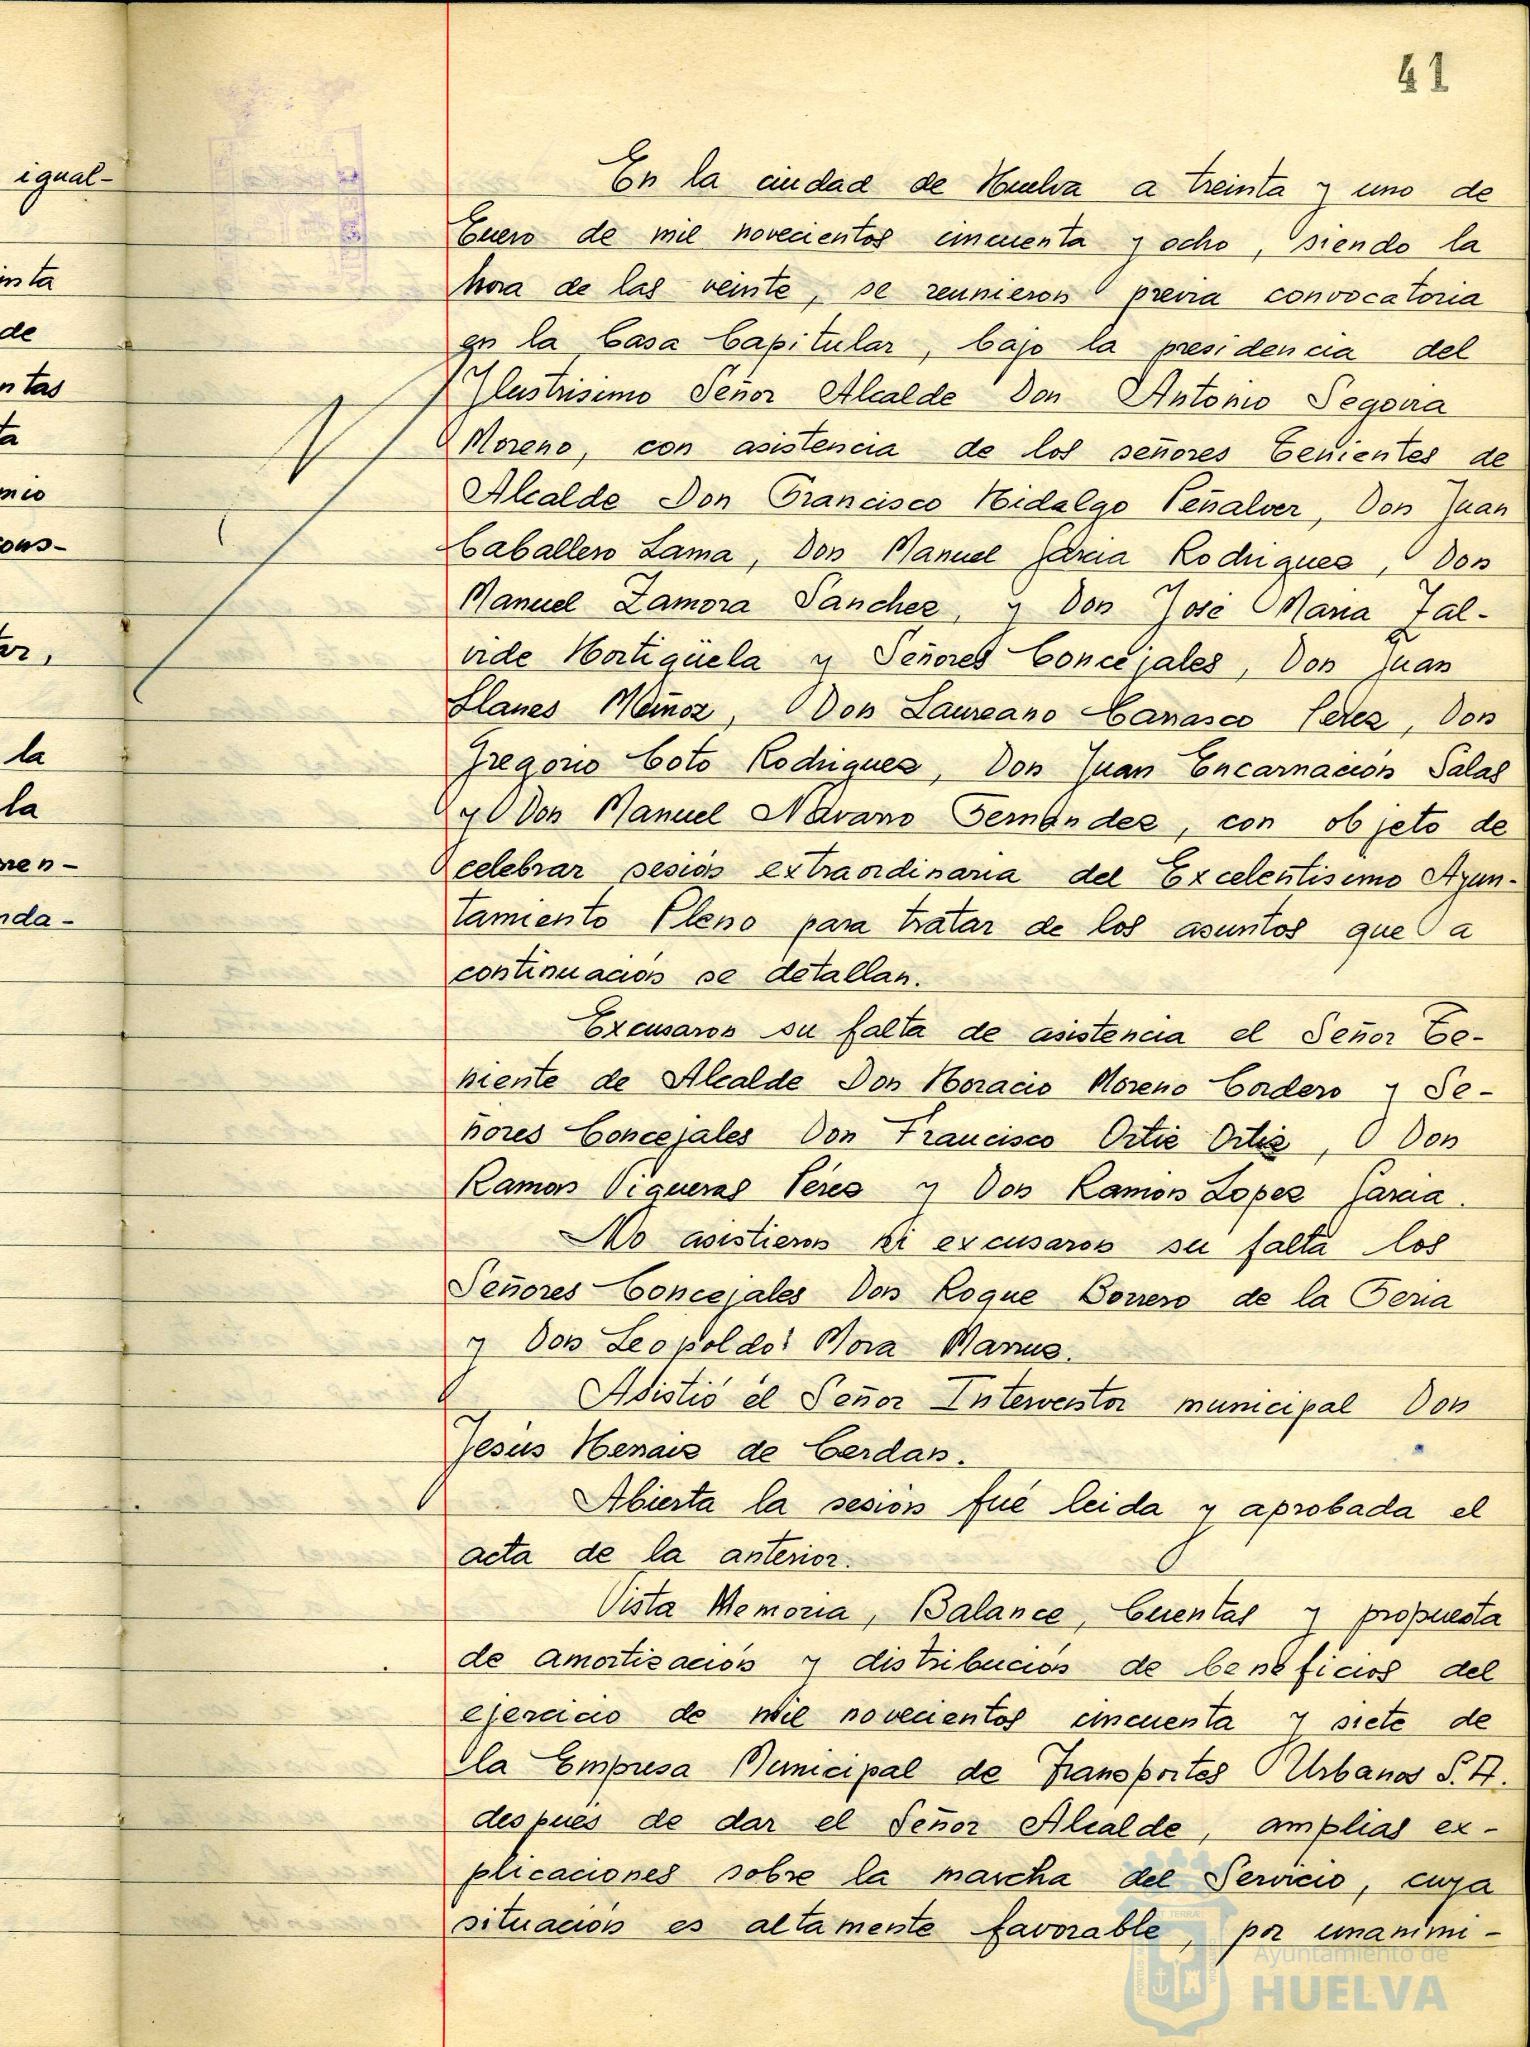 41
igual-
En la ciudad de Huelva a treinta y uno de
Enero de mil novecientos cincuenta y ocho, siendo la
hora de las veinte, se reunieron previa convocatoria
en la Casa Capitular, bajo la presidencia del
Ilustrisimo Señor Alcalde Don Antonio Segovia
Moreno, con asistencia de los señores Tenientes de
Alcalde Don Francisco Hidalgo Peñalver, Don Juan
Caballero Lama, Don Manuel Garcia Rodriguez, Don
Manuel Zamora Sanchez, y Don José Maria Zal-
vide Hortigüela y Señores Concejales, Don Juan
Llanes Muñoz, Don Laureano Carrasco Perez, Don
Gregorio Coto Rodriguez, Don Juan Encarnación Salas
y Don Manuel Navarro Fernandez, con objeto de
celebrar sesión extraordinaria del Excelentisimo Ayun-
tamiento Pleno para tratar de los asuntos que a
continuación se detallan.
Excusaron su falta de asistencia el Señor Te-
niente de Alcalde Don Horacio Moreno Cordero y Se-
ñores Concejales Don Francisco Ortiz Ortiz, Don
Ramon Vigueras Pérez y Don Ramón Lopez Garcia.
No asistieron ni excusaron su falta los
Señores Concejales Don Roque Borrero de la Feria
y Don Leopoldo Mora
Asistió el Señor Interventor municipal Don
Jesús de Cerdan.
Abierta la sesión fué leida y aprobada el
acta de la anterior.
Vista Memoria, Balance, Cuentas y propuesta
de amortización y distribución de beneficios del
ejercicio de mil novecientos cincuenta y siete de
la Empresa Municipal de Transportes Urbanos S.A.
después de dar el Señor Alcalde, amplias ex-
plicaciones sobre la marcha del Servicio, cuya
situación es altamente favorable, por unanimi-
Ayuntamiento de
HUELVA